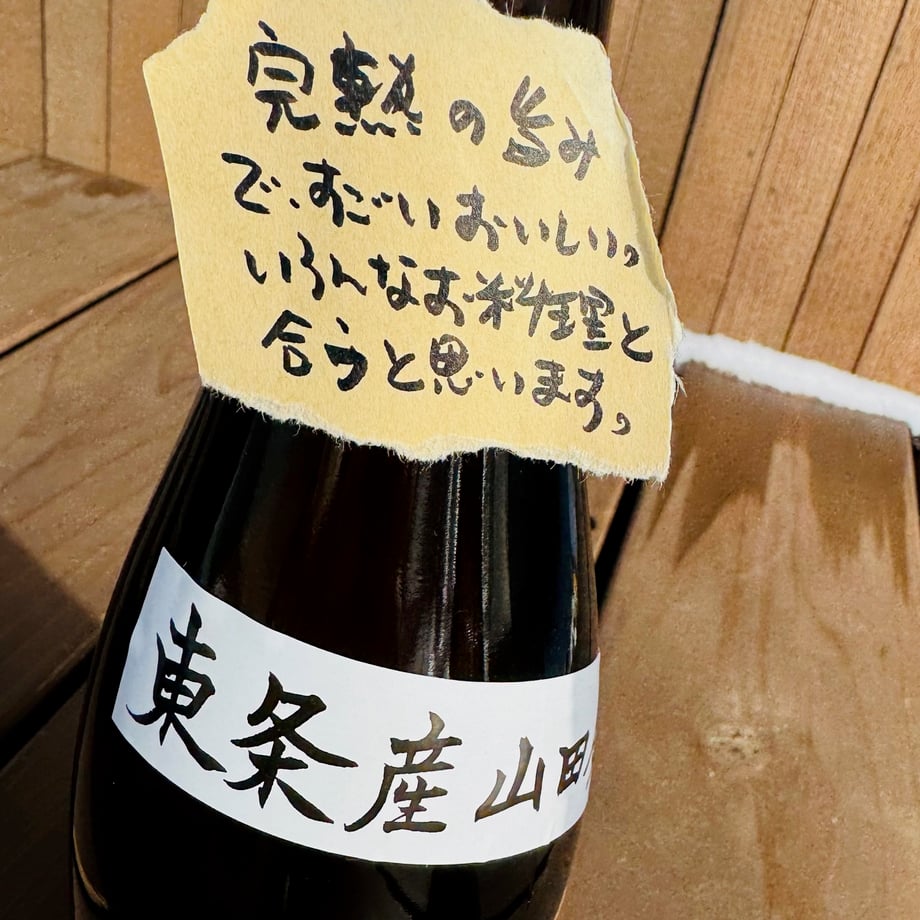 完熟の旨み
で、すごいおいしい。
いろんなお料理と
合うと思います。
東条産山田